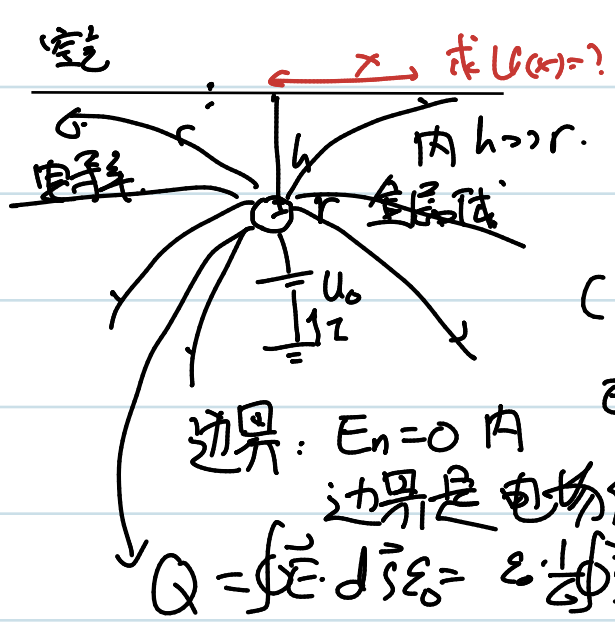 空气
x 求U(x)=?
h 内 h>>r.
r
U₀
I
边界: Eₙ=0 内
边界是电场
Q = ∮E⃗·dS⃗ε₀= ε₀·